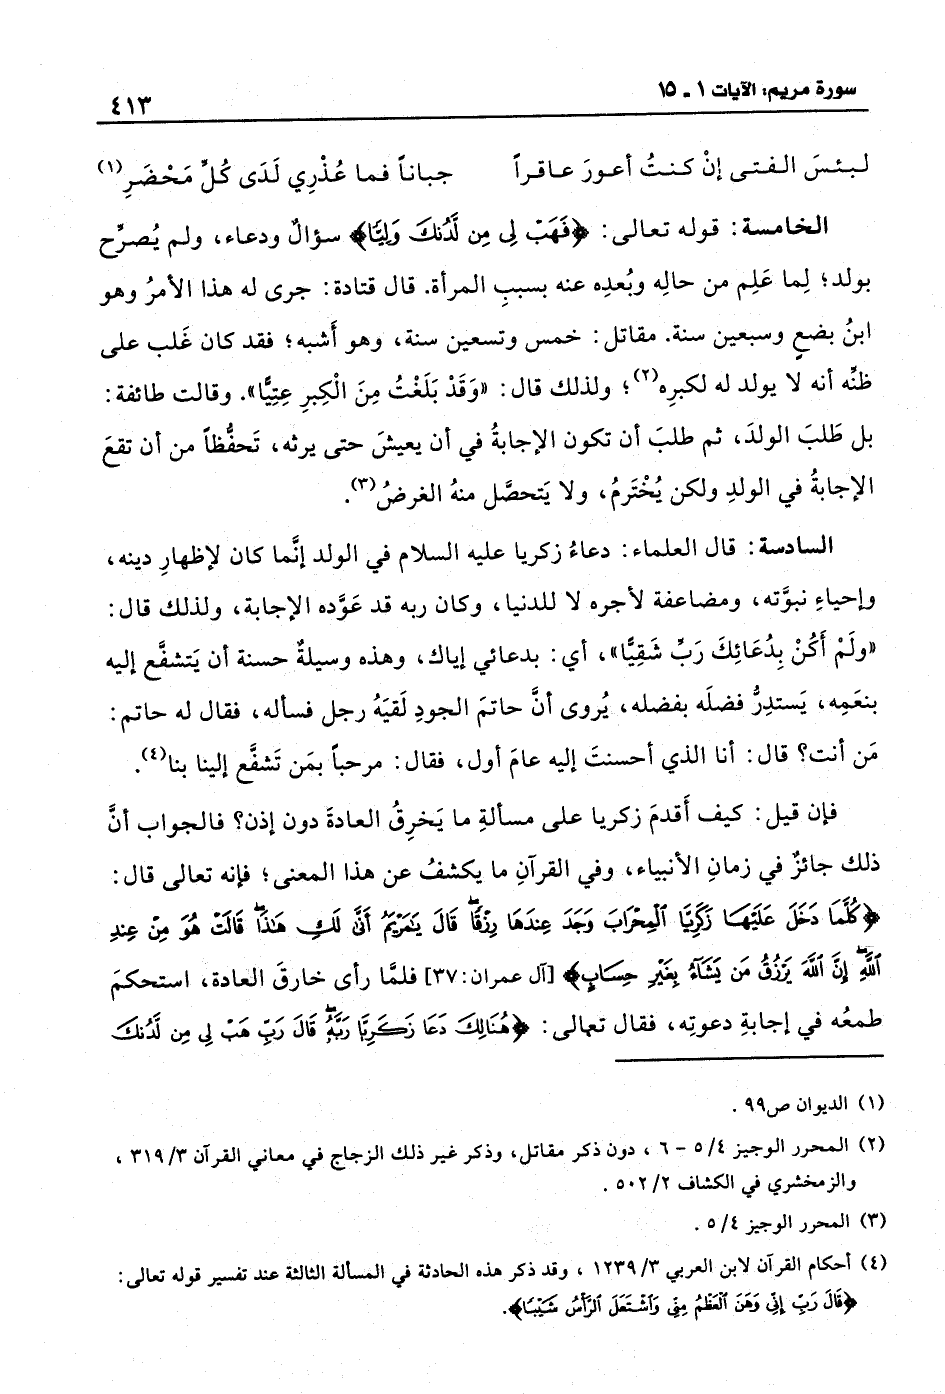 سورة مريم: الآيات ١ ـ ١٥
٤١٣
لـبـئـسَ الـفـتـى إنْ كـنـتُ أعـورَ عـاقـراً جبـانـاً فـمـا عُـذْرِي لَدَى كُلِّ مَحْضَرِ(١)
الخامسة: قوله تعالى: ﴿فَهَبْ لِى مِن لَّدُنكَ وَلِيًّا﴾ سؤالٌ ودعاء، ولم يُصرِّح
بولد؛ لِما عَلِم من حالِه وبُعدِه عنه بسببِ المرأة. قال قتادة: جرى له هذا الأمرُ وهو
ابنُ بضعٍ وسبعين سنة. مقاتل: خمس وتسعين سنة، وهو أَشبه؛ فقد كان غَلب على
ظنِّه أنه لا يولد له لكبرِه(٢)؛ ولذلك قال: «وَقَدْ بَلَغْتُ مِنَ الْكِبرِ عِتِيًّا». وقالت طائفة:
بل طَلبَ الولدَ، ثم طلبَ أن تكون الإجابةُ في أن يعيشَ حتى يرثه، تَحفُّظاً من أن تقعَ
الإجابةُ في الولدِ ولكن يُخْتَرمُ، ولا يَتحصَّل منهُ الغرضُ(٣).
السادسة: قال العلماء: دعاءُ زكريا عليه السلام في الولد إنَّما كان لإظهارِ دينه،
وإحياءِ نبوَّته، ومضاعفة لأجره لا للدنيا، وكان ربه قد عَوَّده الإجابة، ولذلك قال:
«ولَمْ أَكُنْ بِدُعَائِكَ رَبِّ شَقِيًّا»، أي: بدعائي إياك، وهذه وسيلةٌ حسنة أن يَتشفَّع إليه
بنعَمِه، يَستدِرُّ فضلَه بفضله، يُروى أنَّ حاتمَ الجودِ لَقيَهُ رجل فسأله، فقال له حاتم:
مَن أنت؟ قال: أنا الذي أحسنتَ إليه عامَ أول، فقال: مرحباً بمَن تَشفَّع إلينا بنا(٤).
فإن قيل: كيف أَقدمَ زكريا على مسألةِ ما يَخرِقُ العادةَ دون إذن؟ فالجواب أنَّ
ذلك جائزٌ في زمانِ الأنبياء، وفي القرآنِ ما يكشفُ عن هذا المعنى؛ فإنه تعالى قال:
﴿كُلَّمَا دَخَلَ عَلَيْهَا زَكَرِيَّا الْمِحْرَابَ وَجَدَ عِندَهَا رِزْقًا ۖ قَالَ يَٰمَرْيَمُ أَنَّىٰ لَكِ هَٰذَا ۖ قَالَتْ هُوَ مِنْ عِندِ
اللَّهِ ۖ إِنَّ اللَّهَ يَرْزُقُ مَن يَشَآءُ بِغَيْرِ حِسَابٍ﴾ [آل عمران: ٣٧] فلمَّا رأى خارقَ العادة، استحكمَ
طمعُه في إجابةِ دعوتِه، فقال تعالى: ﴿هُنَالِكَ دَعَا زَكَرِيَّا رَبَّهُۥ ۖ قَالَ رَبِّ هَبْ لِى مِن لَّدُنكَ
(١) الديوان ص٩٩ .
(٢) المحرر الوجيز ٤/ ٥ – ٦ ، دون ذكر مقاتل، وذكر غير ذلك الزجاج في معاني القرآن ٣/ ٣١٩ ،
والزمخشري في الكشاف ٢/ ٥٠٢ .
(٣) المحرر الوجيز ٤/ ٥ .
(٤) أحكام القرآن لابن العربي ٣/ ١٢٣٩ ، وقد ذكر هذه الحادثة في المسألة الثالثة عند تفسير قوله تعالى:
﴿قَالَ رَبِّ إِنِّى وَهَنَ الْعَظْمُ مِنِّى وَاشْتَعَلَ الرَّأْسُ شَيْبًا﴾.